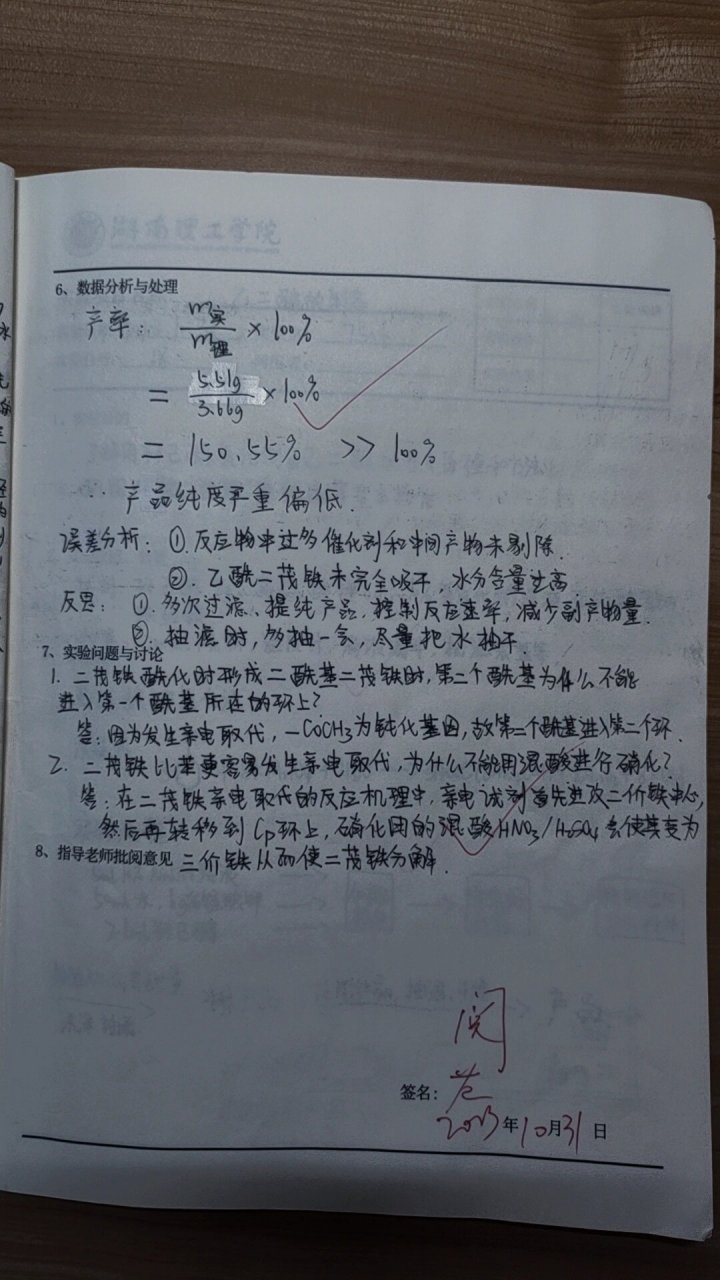 湖南理工学院
6、数据分析与处理
产率: m实/m理 × 100%
= 5.51g/3.66g × 100%
= 150.55% >> 100%
∴ 产品纯度严重偏低.
误差分析: ①.反应物中过多催化剂和中间产物未剔除.
②. 乙酰二茂铁未完全吸干,水分含量过高
反思: ①. 多次过滤、提纯产品,控制反应速率,减少副产物量.
②. 抽滤时,多抽一会,尽量把水抽干.
7、实验问题与讨论
1. 二茂铁酰化时形成二酰基二茂铁时,第二个酰基为什么不能
进入第一个酰基所在的环上?
答:因为发生亲电取代,—COCH3为钝化基团,故第二个酰基进入第二个环.
2. 二茂铁比苯更容易发生亲电取代,为什么不能用混酸进行硝化?
答:在二茂铁亲电取代的反应机理中,亲电试剂首先进攻二价铁中心,
然后再转移到Cp环上,硝化用的混酸HNO3/H2SO4会使其变为
8、指导老师批阅意见 三价铁从而使二茂铁分解.
阅
签名:
2023年10月31日